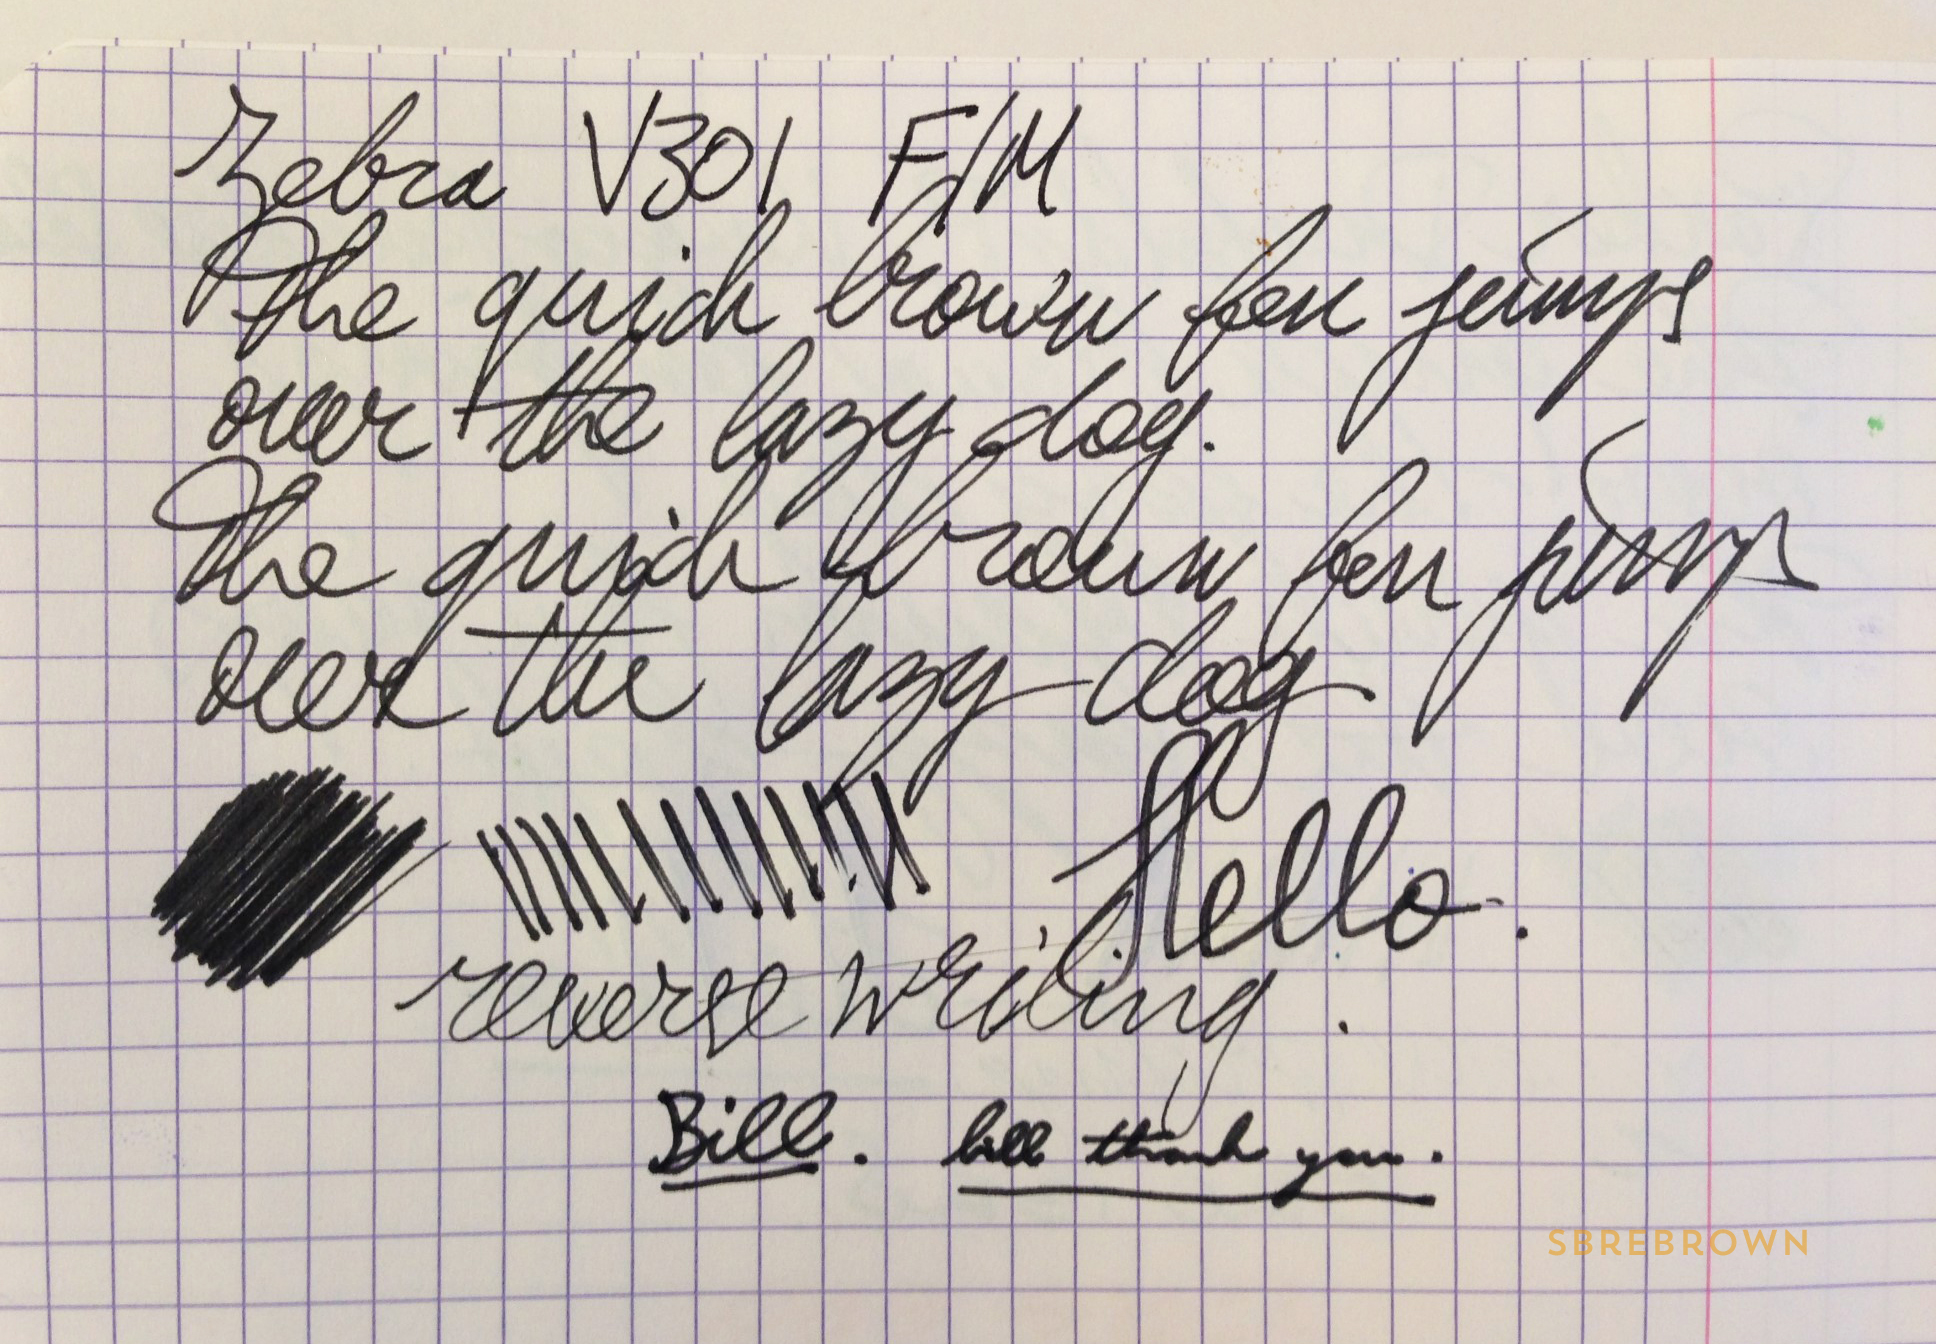 Zebra V301 F/M
The quick brown fox jumps
over the lazy dog.
The quick brown fox jumps
over the lazy dog
Hello.
reverse writing.
Bill. bill thank you.
SBREBROWN